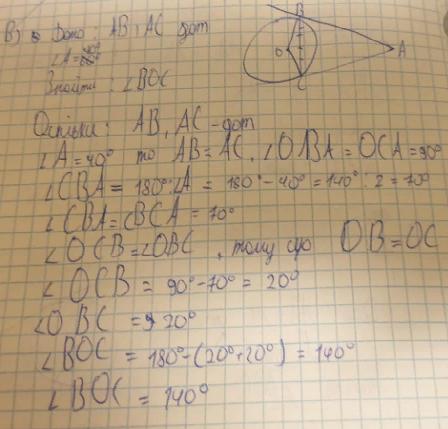 В) Дано: AB, AC дот
∠A = 40°
Знайти: ∠BOC
B
O
A
C
Оскільки AB, AC - дот
∠A = 40° то AB = AC, ∠OBA = OCA = 90°
∠CBA = 180° - ∠A = 180° - 40° = 140° : 2 = 70°
∠CBA = ∠BCA = 70°
∠OCB = ∠OBC, тому що OB = OC
∠OCB = 90° - 70° = 20°
∠OBC = 20°
∠BOC = 180° - (20° + 20°) = 140°
∠BOC = 140°